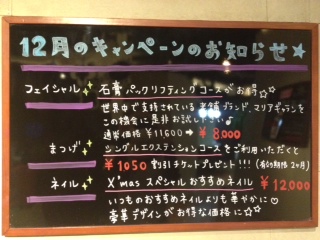 12月のキャンペーンのお知らせ☆
フェイシャル 石膏パックリフティングコースがお得☆☆
世界中で支持されている老舗ブランド、マリアギャランを
この機会に是非お試し下さい♪
通常価格 ¥11,600 → ¥8,000
まつげ シングルエクステンションコースをご利用いただくと
¥1050 割引きチケットプレゼント!!! (有効期限2ヶ月)
ネイル X'mas スペシャルおすすめネイル ¥12,000
いつものおすすめネイルよりも華やかに♡
豪華デザインがお得な価格に☆☆